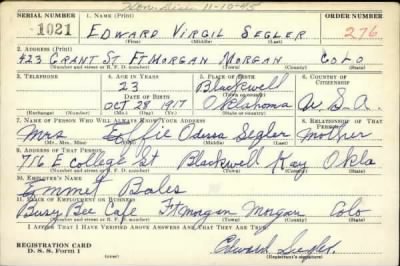 SERIAL NUMBER 1. NAME (Print) ORDER NUMBER
1021 EDWARD VIRGIL SEGLER 276
2. ADDRESS (Print)
423 GRANT ST FT. MORGAN MORGAN COLO
(Number and street or R. F. D. number) (Town) (County) (State)
3. TELEPHONE 4. AGE IN YEARS 5. PLACE OF BIRTH 6. COUNTRY OF CITIZENSHIP
23 Blackwell
DATE OF BIRTH (Town or county)
OCT 28 1917 Oklahoma U.S.A.
(Exchange) (Number) (Mo.) (Day) (Yr.) (State or country)
7. NAME OF PERSON WHO WILL ALWAYS KNOW YOUR ADDRESS 8. RELATIONSHIP OF THAT PERSON
Mrs Effie Odessa Segler mother
(Mr., Mrs., Miss) (First) (Middle) (Last)
9. ADDRESS OF THAT PERSON
716 E College St Blackwell Kay Okla
(Number and street or R. F. D. number) (Town) (County) (State)
10. EMPLOYER'S NAME
Emmet Bales
11. PLACE OF EMPLOYMENT OR BUSINESS
Busy Bee Cafe Ft Morgan Morgan Colo
(Number and street or R. F. D. number) (Town) (County) (State)
I AFFIRM THAT I HAVE VERIFIED ABOVE ANSWERS AND THAT THEY ARE TRUE.
REGISTRATION CARD
D. S. S. Form 1
Edward Segler
(Registrant's signature)